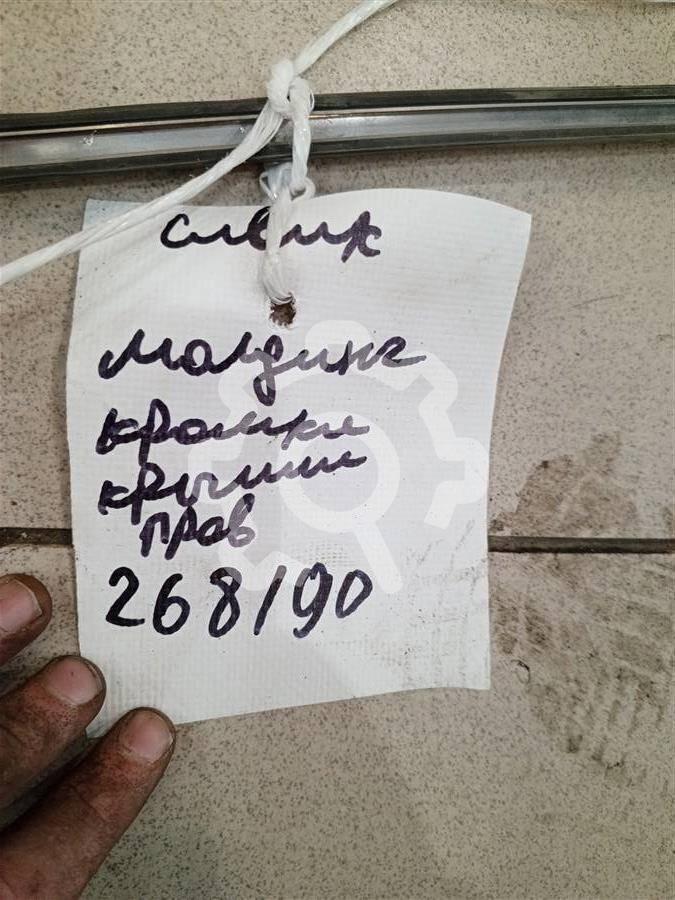 сивик
молдинг
кромки
крыши
прав
268/90